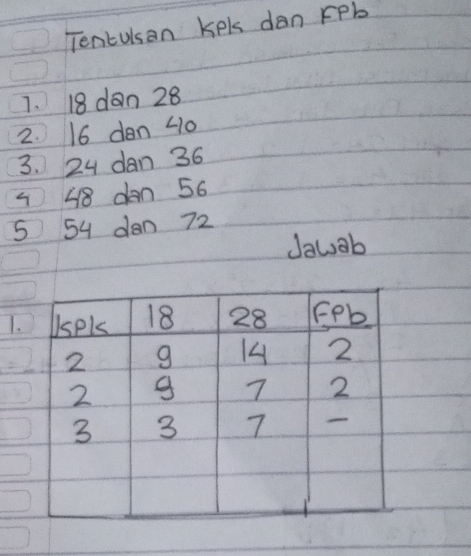 Tentukan Kpk dan Fpb
1. 18 dan 28
2. 16 dan 40
3. 24 dan 36
4 48 dan 56
5 54 dan 72
Jawab
1. Kpk 18 28 Fpb
2 9 14 2
2 9 7 2
3 3 7 -